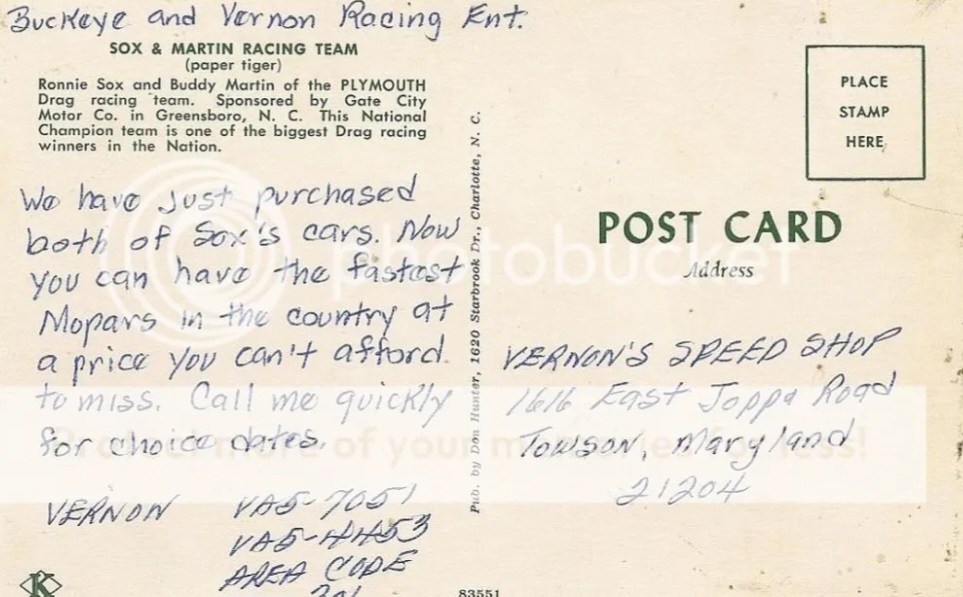 Buckeye and Vernon Racing Ent.
SOX & MARTIN RACING TEAM
(paper tiger)
Ronnie Sox and Buddy Martin of the PLYMOUTH
Drag racing team. Sponsored by Gate City
Motor Co. in Greensboro, N. C. This National
Champion team is one of the biggest Drag racing
winners in the Nation.
We have just purchased
both of Sox's cars. Now
you can have the fastest
Mopars in the country at
a price you can't afford
to miss. Call me quickly
for choice dates.
VERNON VA5-7051
VA5-4453
AREA CODE
301
K
Pub. by Don Hunter, 1620 Starbrook Dr., Charlotte, N. C.
83551
PLACE
STAMP
HERE
POST CARD
Address
VERNON'S SPEED SHOP
1616 East Joppa Road
Towson, Maryland
21204
photobucket
Protect more of your memories for less!